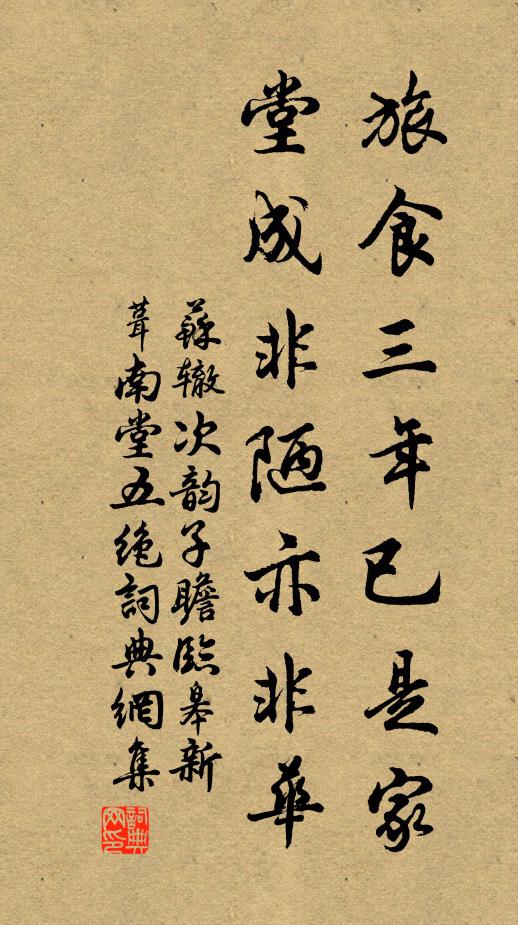 旅食三年已是家
堂成非陋亦非華
蘇辙次韵子瞻臨皋新
葺南堂五绝詞典網集
詞典网印